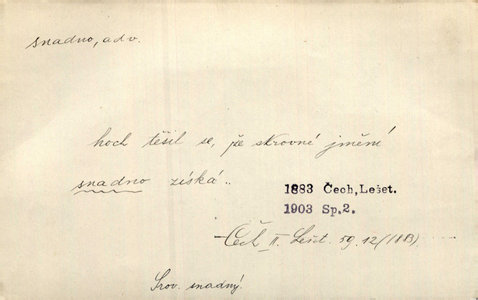 snadno, adv.
hoch těšil se, že skrovné jmění
snadno získá..
1883 Čech, Lešet.
1903 Sp.2.
Čch II. Lešet. 59.12/(1883)
Srov. snadný.